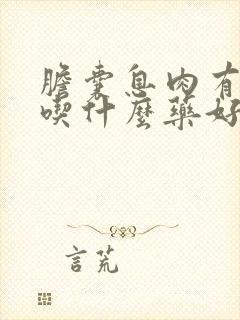 膽囊息肉有
喫什麼藥好
言荒